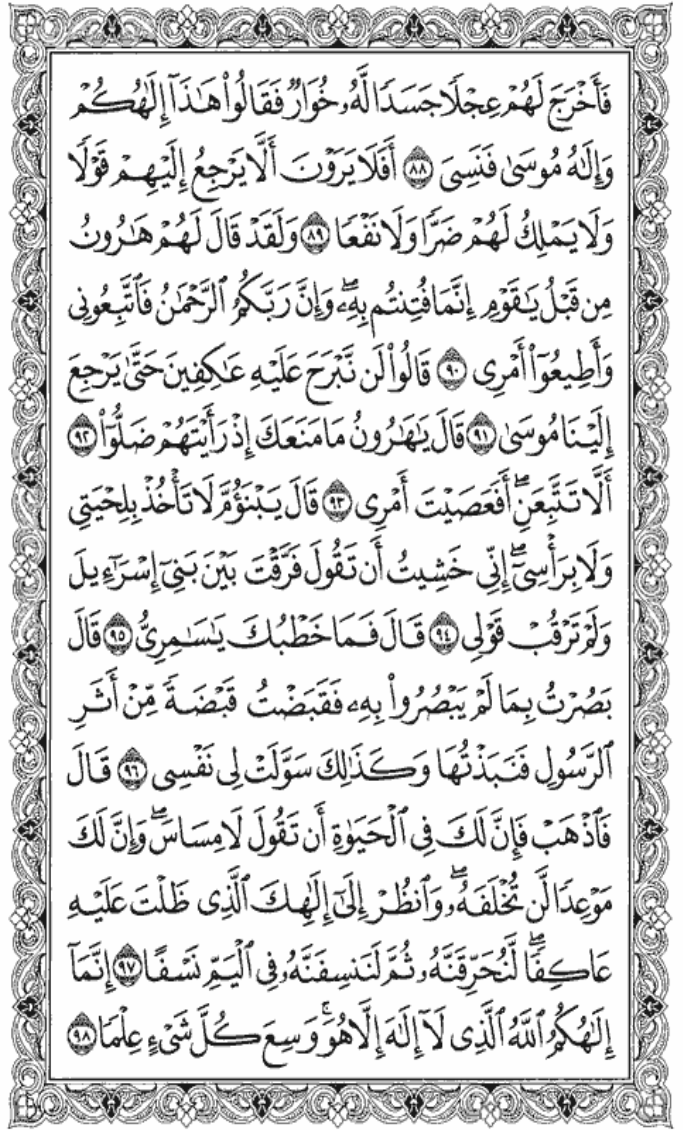 فَأَخْرَجَ لَهُمْ عِجْلًا جَسَدًا لَّهُۥ خُوَارٌ فَقَالُوا۟ هَٰذَآ إِلَٰهُكُمْ
وَإِلَٰهُ مُوسَىٰ فَنَسِىَ ٨٨ أَفَلَا يَرَوْنَ أَلَّا يَرْجِعُ إِلَيْهِمْ قَوْلًا
وَلَا يَمْلِكُ لَهُمْ ضَرًّا وَلَا نَفْعًا ٨٩ وَلَقَدْ قَالَ لَهُمْ هَٰرُونُ
مِن قَبْلُ يَٰقَوْمِ إِنَّمَا فُتِنتُم بِهِۦۖ وَإِنَّ رَبَّكُمُ ٱلرَّحْمَٰنُ فَٱتَّبِعُونِى
وَأَطِيعُوٓا۟ أَمْرِى ٩٠ قَالُوا۟ لَن نَّبْرَحَ عَلَيْهِ عَٰكِفِينَ حَتَّىٰ يَرْجِعَ
إِلَيْنَا مُوسَىٰ ٩١ قَالَ يَٰهَٰرُونُ مَا مَنَعَكَ إِذْ رَأَيْتَهُمْ ضَلُّوٓا۟ ٩٢
أَلَّا تَتَّبِعَنِۖ أَفَعَصَيْتَ أَمْرِى ٩٣ قَالَ يَبْنَؤُمَّ لَا تَأْخُذْ بِلِحْيَتِى
وَلَا بِرَأْسِىٓۖ إِنِّى خَشِيتُ أَن تَقُولَ فَرَّقْتَ بَيْنَ بَنِىٓ إِسْرَٰٓءِيلَ
وَلَمْ تَرْقُبْ قَوْلِى ٩٤ قَالَ فَمَا خَطْبُكَ يَٰسَٰمِرِىُّ ٩٥ قَالَ
بَصُرْتُ بِمَا لَمْ يَبْصُرُوا۟ بِهِۦ فَقَبَضْتُ قَبْضَةً مِّنْ أَثَرِ
ٱلرَّسُولِ فَنَبَذْتُهَا وَكَذَٰلِكَ سَوَّلَتْ لِى نَفْسِى ٩٦ قَالَ
فَٱذْهَبْ فَإِنَّ لَكَ فِى ٱلْحَيَوٰةِ أَن تَقُولَ لَا مِسَاسَۖ وَإِنَّ لَكَ
مَوْعِدًا لَّن تُخْلَفَهُۥۖ وَٱنظُرْ إِلَىٰٓ إِلَٰهِكَ ٱلَّذِى ظَلْتَ عَلَيْهِ
عَاكِفًاۖ لَّنُحَرِّقَنَّهُۥ ثُمَّ لَنَنسِفَنَّهُۥ فِى ٱلْيَمِّ نَسْفًا ٩٧ إِنَّمَآ
إِلَٰهُكُمُ ٱللَّهُ ٱلَّذِى لَآ إِلَٰهَ إِلَّا هُوَۚ وَسِعَ كُلَّ شَىْءٍ عِلْمًا ٩٨